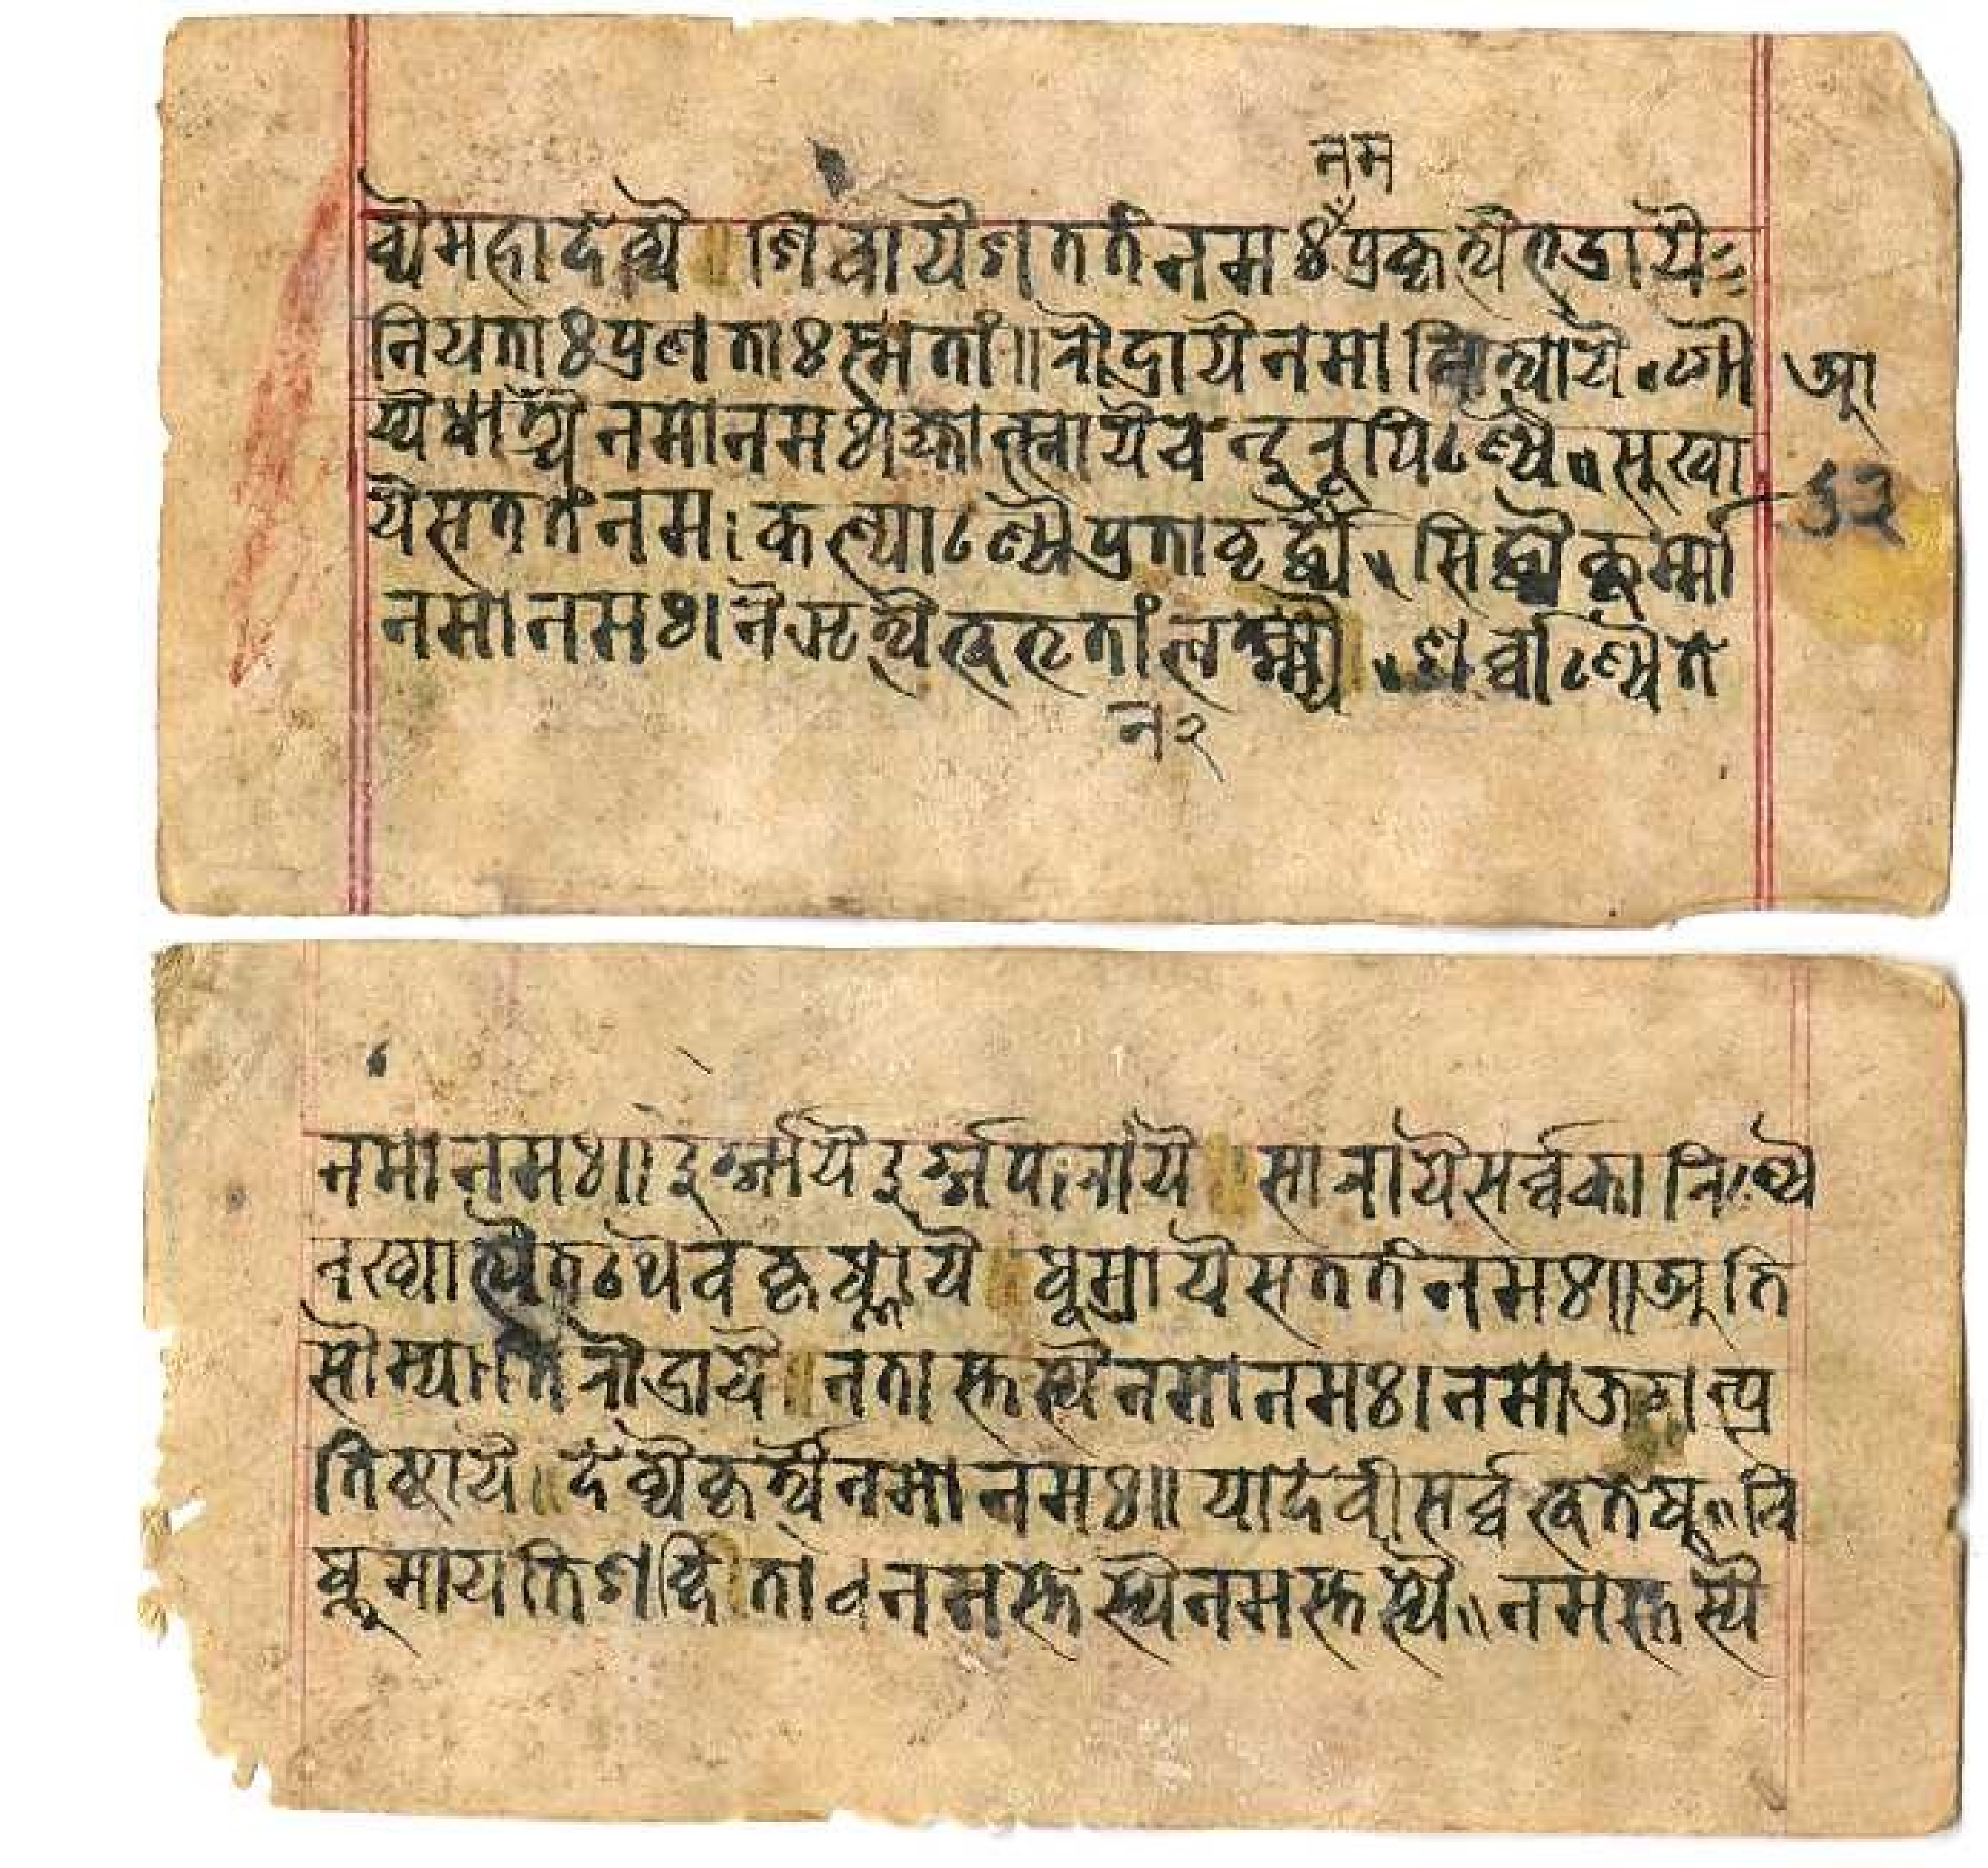 नम
व्यैमहादेव्यै ॥ शिवायैशततंनमः प्रकृत्यैभद्रायै
नियताः प्रणताः स्मतां ॥ रौद्रायैनमो नित्यायै गौ
आ
र्य्यैधात्र्यै नमोनमः । ज्योत्स्नायैचेन्दुरूपिण्यै ॥ सुखा
३२
यैसततंनम । कल्याण्यैप्रणतावृद्ध्यै ॥ सिद्ध्यैकुर्म्मो
नमोनमः । नैऋत्यैभूभृतांलक्ष्म्यै ॥ शर्वाण्यैते
न२
नमोनमः ॥ दुर्ग्गायैदुर्ग्गपारायै ॥ सारायैसर्व्वकारिण्यै
ख्यात्यैतथैवकृष्णायै ॥ धूम्रायैसततंनमः ॥ अति
सौम्यातिरौद्रायै ॥ नतास्तस्यैनमोनमः । नमोजगत्प्र
तिष्ठायै ॥ देव्यैकृत्यैनमोनमः ॥ यादेवीसर्व्वभूतेषु ॥ वि
ष्णुमायेतिशब्दिता ॥ नमस्तस्यैनमस्तस्यै ॥ नमस्तस्यै